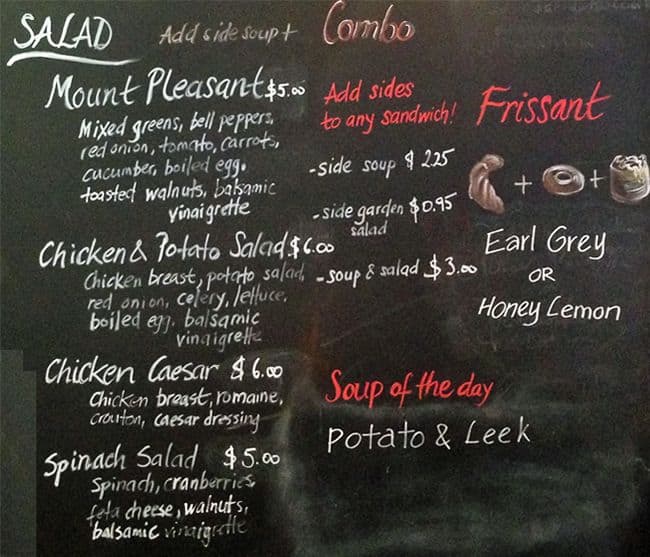 SALAD Add side soup +
Mount Pleasant $5.00
Mixed greens, bell peppers,
red onion, tomato, carrots,
cucumber, boiled egg.
toasted walnuts, balsamic
vinaigrette
Chicken & Potato Salad $6.00
Chicken breast, potato salad,
red onion, celery, lettuce,
boiled egg. balsamic
vinaigrette
Chicken Caesar $6.00
Chicken breast, romaine,
crouton, caesar dressing
Spinach Salad $5.00
Spinach, cranberries,
feta cheese, walnuts,
balsamic vinaigrette
Combo
Add sides
to any sandwich!
- side soup $2.25
- side garden $0.95
salad
- soup & salad $3.00
Soup of the day
Potato & Leek
Frissant
+ +
Earl Grey
OR
Honey Lemon